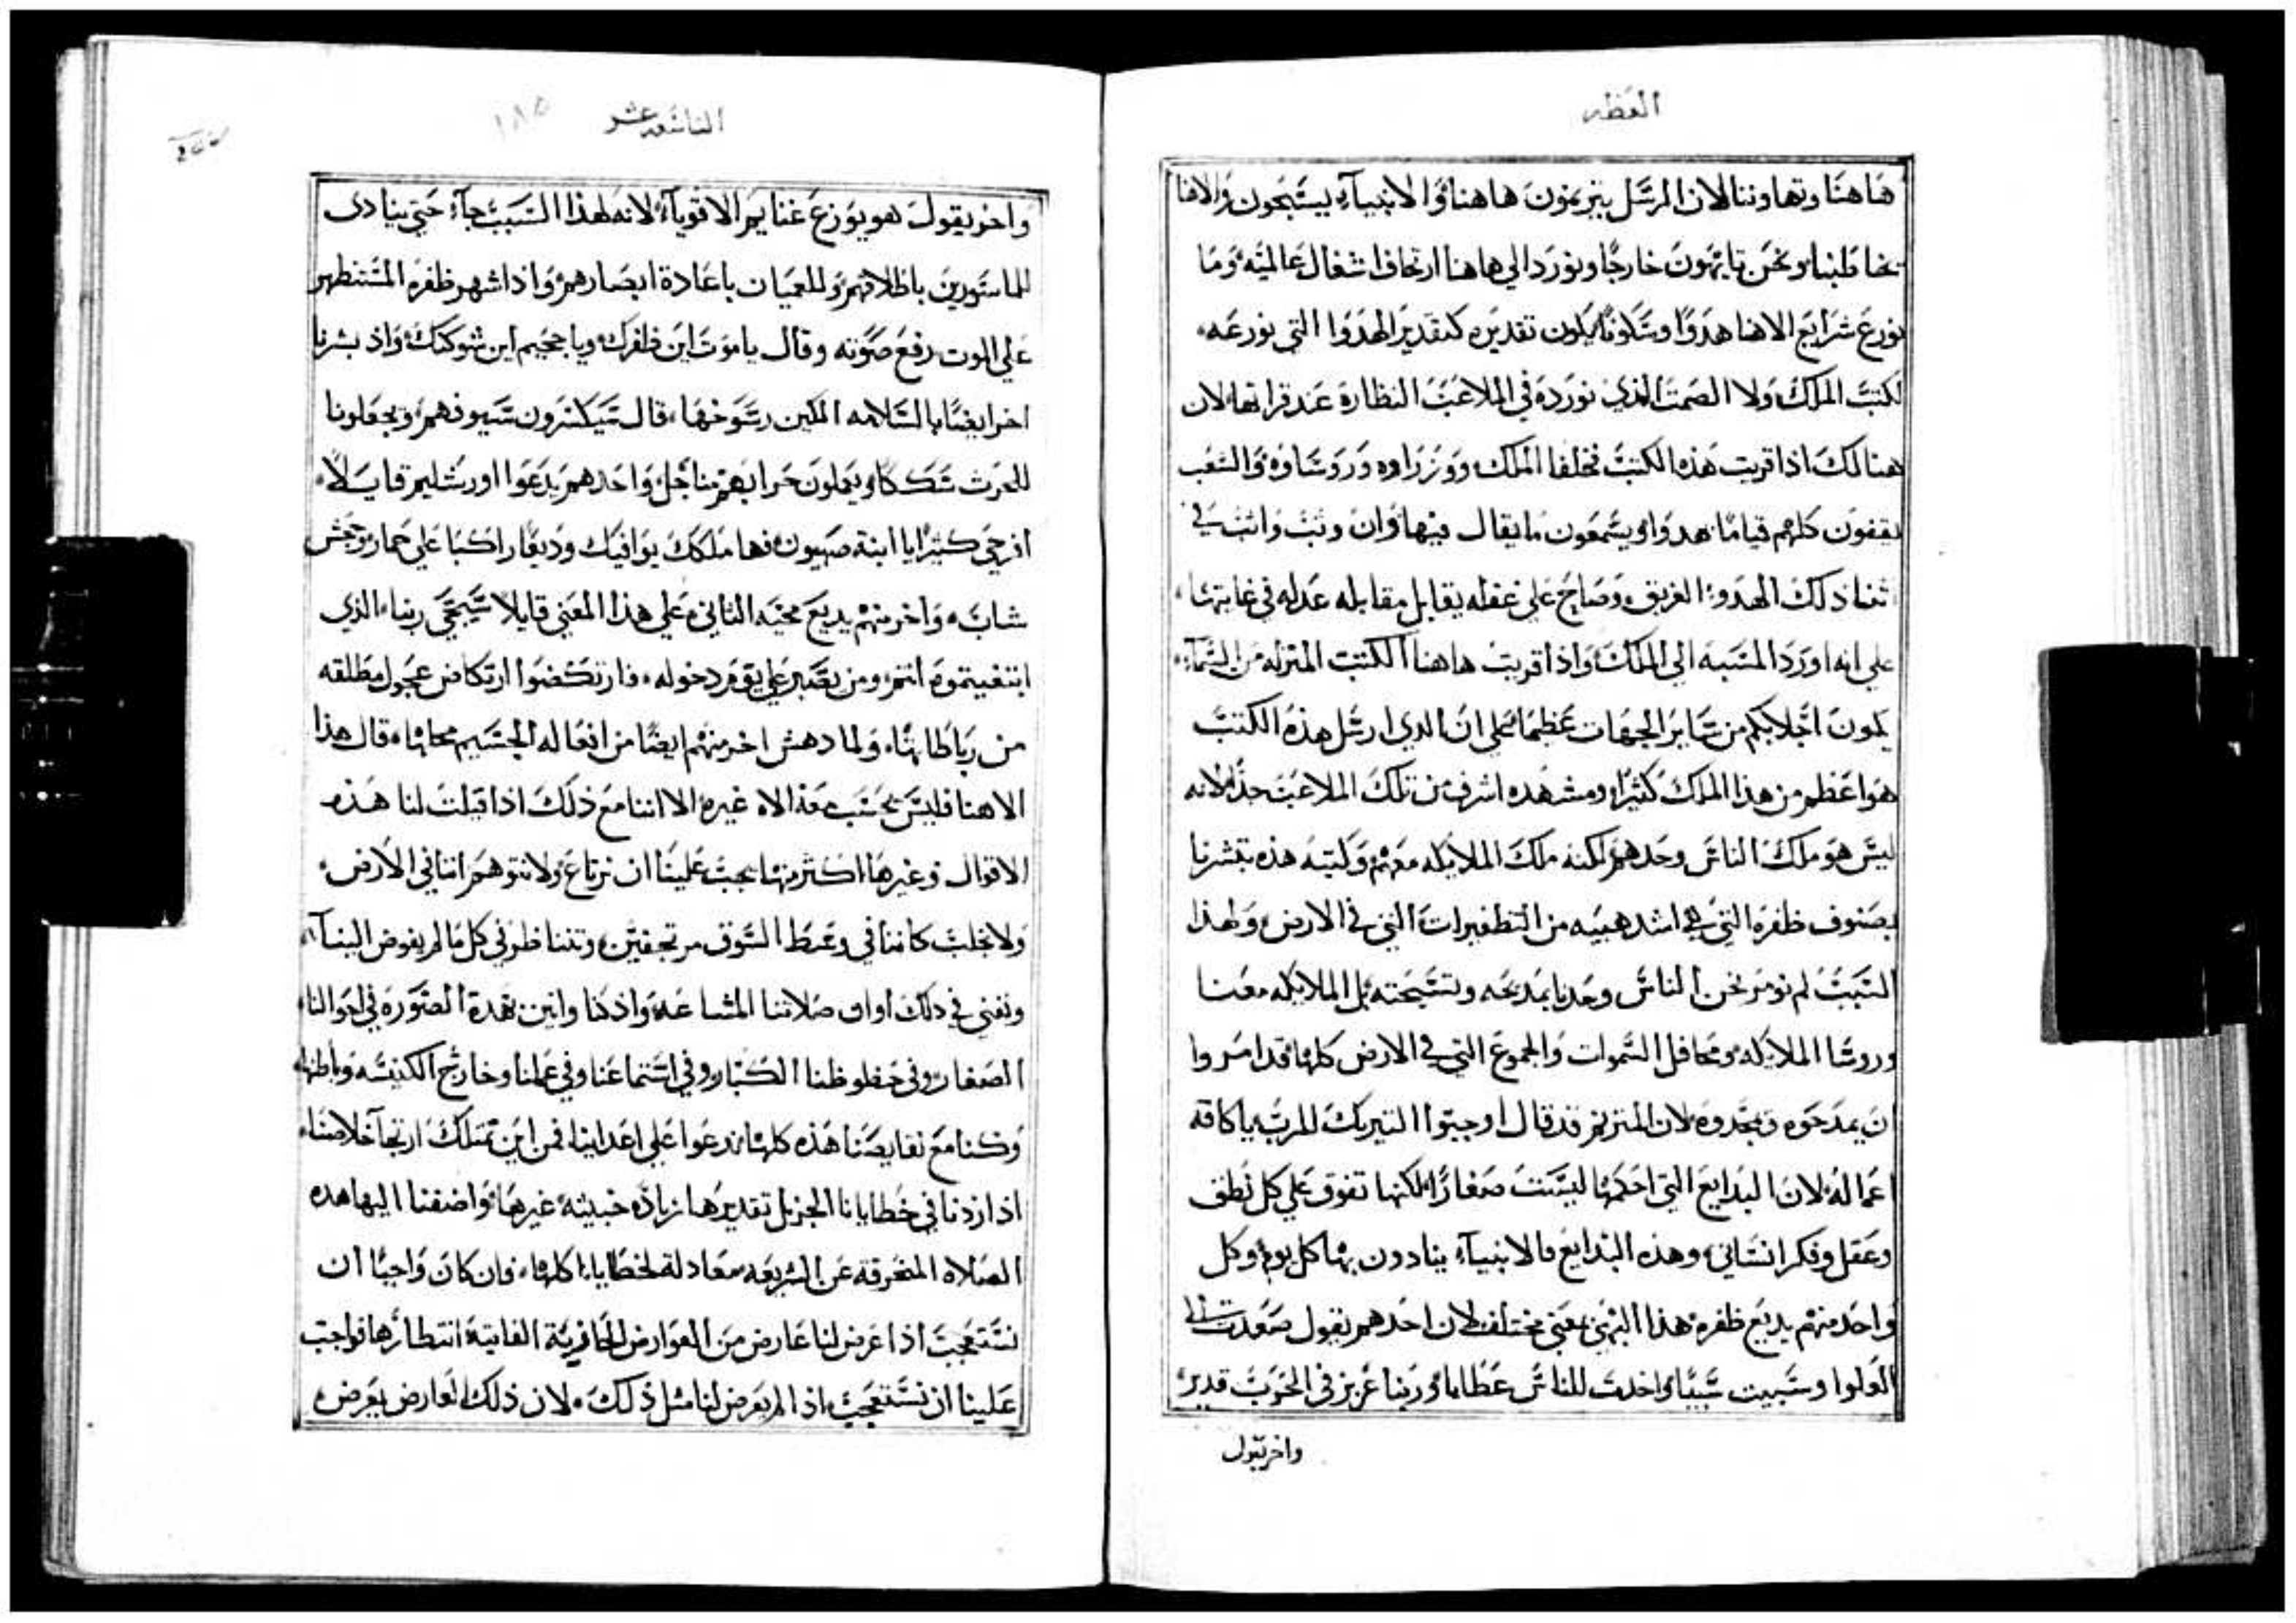 العظه
هاهنا وتهاوننا لان الرسل يترنمون هاهنا والانبيآء يسبحون والاهنا
يخاطبنا ونحن تايهون خارجًا ونورد الي هاهنا ارتجاف اشغال عالميه وما
نوزع شرايع الاهنا هدوًا وسكوتًا يكون تقديره كتقدير الهدوا التي نوزعه
لكتب الملك ولا الصمت الذي نورده في الملاعب النظارة عند قراتها لان
هنالك اذا قريت هذه الكتب نخلفا الملك ووزراوه وروساوه والشعب
يقفون كلهم قيامًا بهدوا ويسمعون ما يقال فيها وان وثب واثب في
اثنا ذلك الهدوء الغريق وصايح علي غفله يقابل مقابله عدله في غايتها
علي انه اورد المسبه الي الملك واذا قريت هاهنا الكتب المنزله من السمآء
يكون اجلابكم من ساير الجهات عظيما علي ان الذي ارسل هذه الكتب
هو اعظم من هذا الملك كثيرًا ومشهده اشرف من تلك الملاعب جدًا لانه
ليس هو ملك الناس وحدهم لكنه ملك الملايكه معهم وكتبه هذه تبشرنا
بصنوف ظفره التي هي اشد هيبه من التظفيرات التي في الارض ولهذا
السبب لم نومر نحن الناس وحدنا بمديحه وتسبحته بل الملايكه معنا
وروسا الملايكه ومحافل السموات والجموع التي في الارض كلها قد امروا
ان يمدحوه ويمجدوه لان المترنم قد قال اوجبوا التبريك للرب يا كافة
اعماله لان البدايع التي احكمها ليست صغارًا لكنها تفوق علي كل نطق
وعقل وفكر انساني وهذه البدايع فالانبيآء ينادون بها كل يوم وكل
واحد منهم يديع ظفره هذا البهي بمعني مختلف لان احدهم يقول صعدت الي
العلوا وسبيت سبيًا واخدت للناس عطاما وربنا عزيز في الحروب قدير
واخر يقول
التاسعه عشر
١٨٥
واخر يقول هو يوزع غنايم الاقويآء لانه لهذا السبب جآء حتي ينادي
للماسورين باطلاقهم وللعميان باعادة ابصارهم واذا اشهر ظفره المستظهر
علي الموت رفع صوته وقال يا موت اين ظفرك ويا جحيم اين شوكتك واذ بشرنا
اخر ايضًا بالسلامه المكين رسوخها قال سيكسرون سيوفهم ويجعلونا
للحرث سككا ويعملون حرابهم مناجل واحدهم يدعوا اورشليم قايلًا
افرحي كثيرًا يا ابنة صهيون فها ملكك يوافيك وديعًا راكبًا علي حمار وجحش
شاب واخر منهم يديع مجيه الثاني علي هذا المعني قايلا سيجي ربنا الذي
ابتغيتموه انتم ومن يصبر علي يوم دخوله فارتكضوا ارتكاض عجول مطلقه
من رباطاتها ولما دهش اخر منهم ايضًا من افعاله الجسيم محلها قال هذا
الاهنا فليس يحتسب معه الاه غيره الا اننا مع ذلك اذا قيلت لنا هذه
الاقوال وغيرها اكثر منها يجب علينا ان نرتاع ولا نتوهم اننا في الارض
ولا نجلب كاننا في وسط السوق مرتجفين ونتناظر في كل ما لم يفوض الينا
ونفني في ذلك اوان صلاتنا المشاعه واذ كنا وانين بهذة الصوره في احوالنا
الصغار وفي حظوظنا الكبار وفي استماعنا وفي عملنا وخارج الكنيسه وباطنها
وكنا مع نقايصنا هذه كلها ندعوا علي اعداينا فمن اين نمتلك ارتجآ خلاصنا
اذا زدنا في خطايانا الجزيل تقديرها زيادة خبيثه غيرها واضفنا اليها هده
الصلاة المنحرفه عن الشريعه معادلة لخطايانا كلها فان كان واجبًا ان
نستعجب اذا عرض لنا عارض من العوارض الفايته انتظارها فواجب
علينا ان نستعجب اذا لم يعرض لنا مثل ذلك لان ذلك العارض يعرض